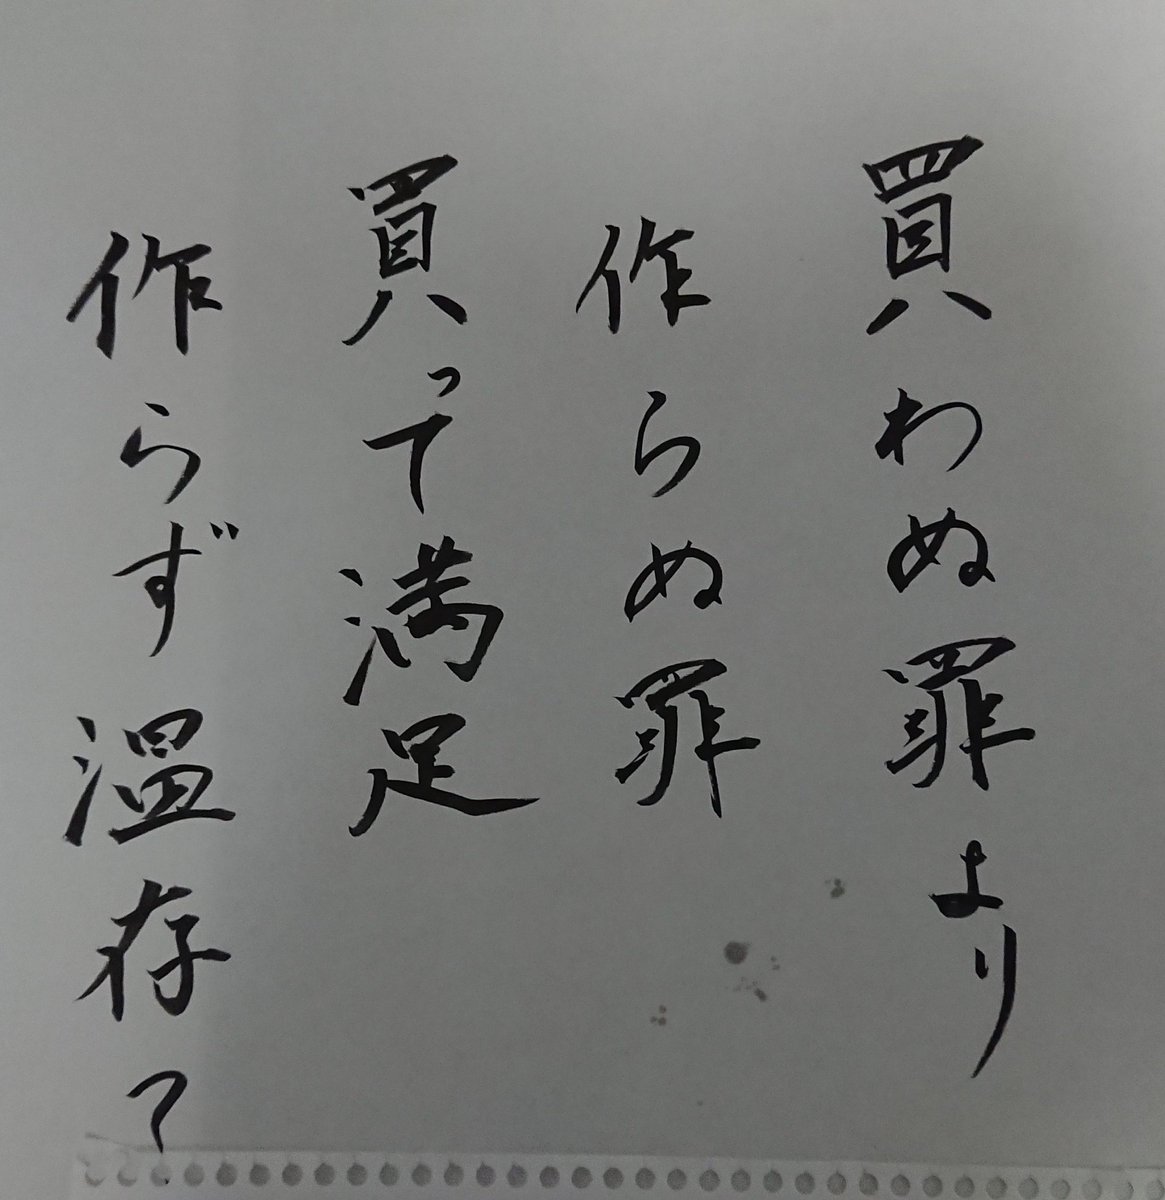 買わぬ罪より
作らぬ罪
買って満足
作らず温存